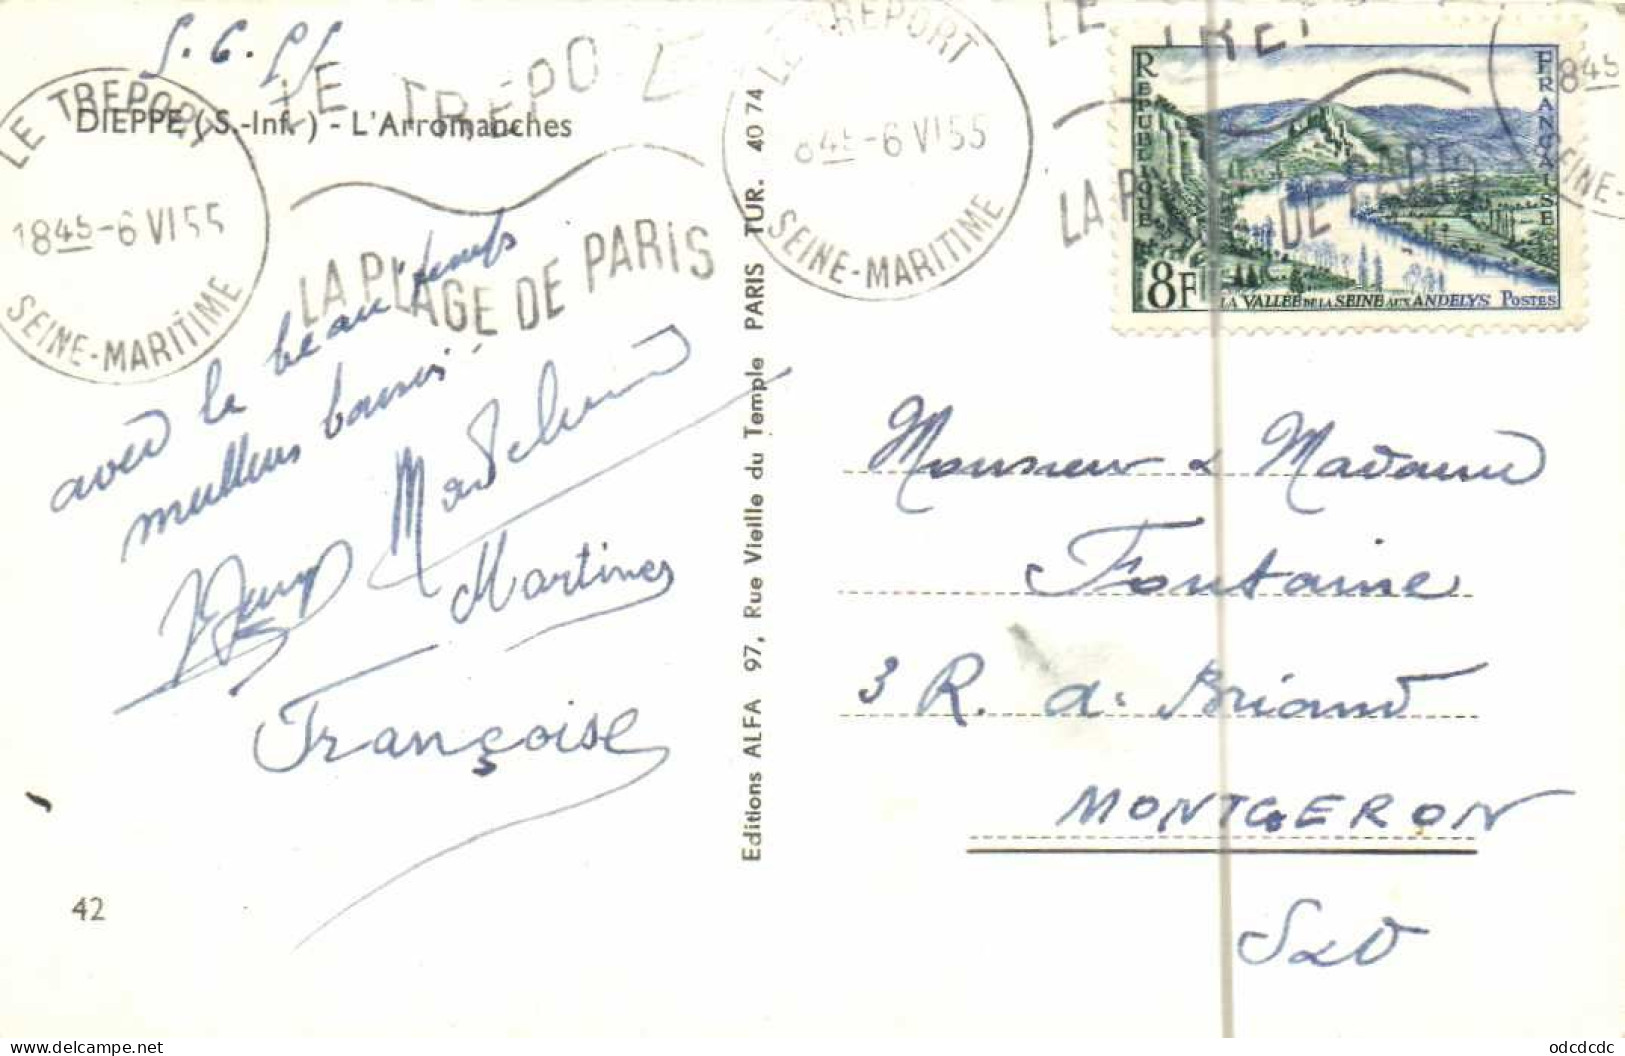 LE TREPORT
18 45 - 6 VI 55
SEINE-MARITIME
LE TREPORT
LA PLAGE DE PARIS
LE TREPORT
8 45 - 6 VI 55
SEINE-MARITIME
LE TREP
LA PLAGE DE PARIS
845
SEINE-
REPUBLIQUE
FRANÇAISE
8F
LA VALLEE DE LA SEINE AUX ANDELYS POSTES
DIEPPE (S.-Inf.) - L'Arromanches
avec le beau temps
meilleurs baisers
Martines
Françoise
42
Editions ALFA 97, Rue Vieille du Temple PARIS TUR. 40 74
Monsieur & Madame
Fontaine
3 R. A. Briand
MONTGERON
S&O
odcdcdc